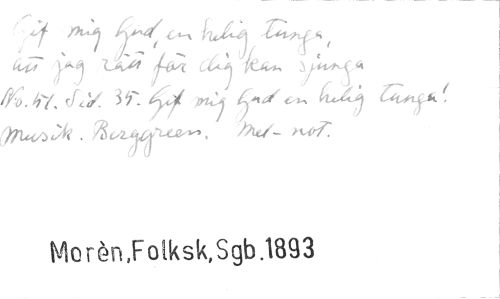 Gif mig Gud, en helig tunga,
att jag rätt för dig kan sjunga
No. 51. Sid. 35. Gif mig Gud en helig tunga!
Musik. Berggreen. Mel-not.
Morèn,Folksk,Sgb.1893